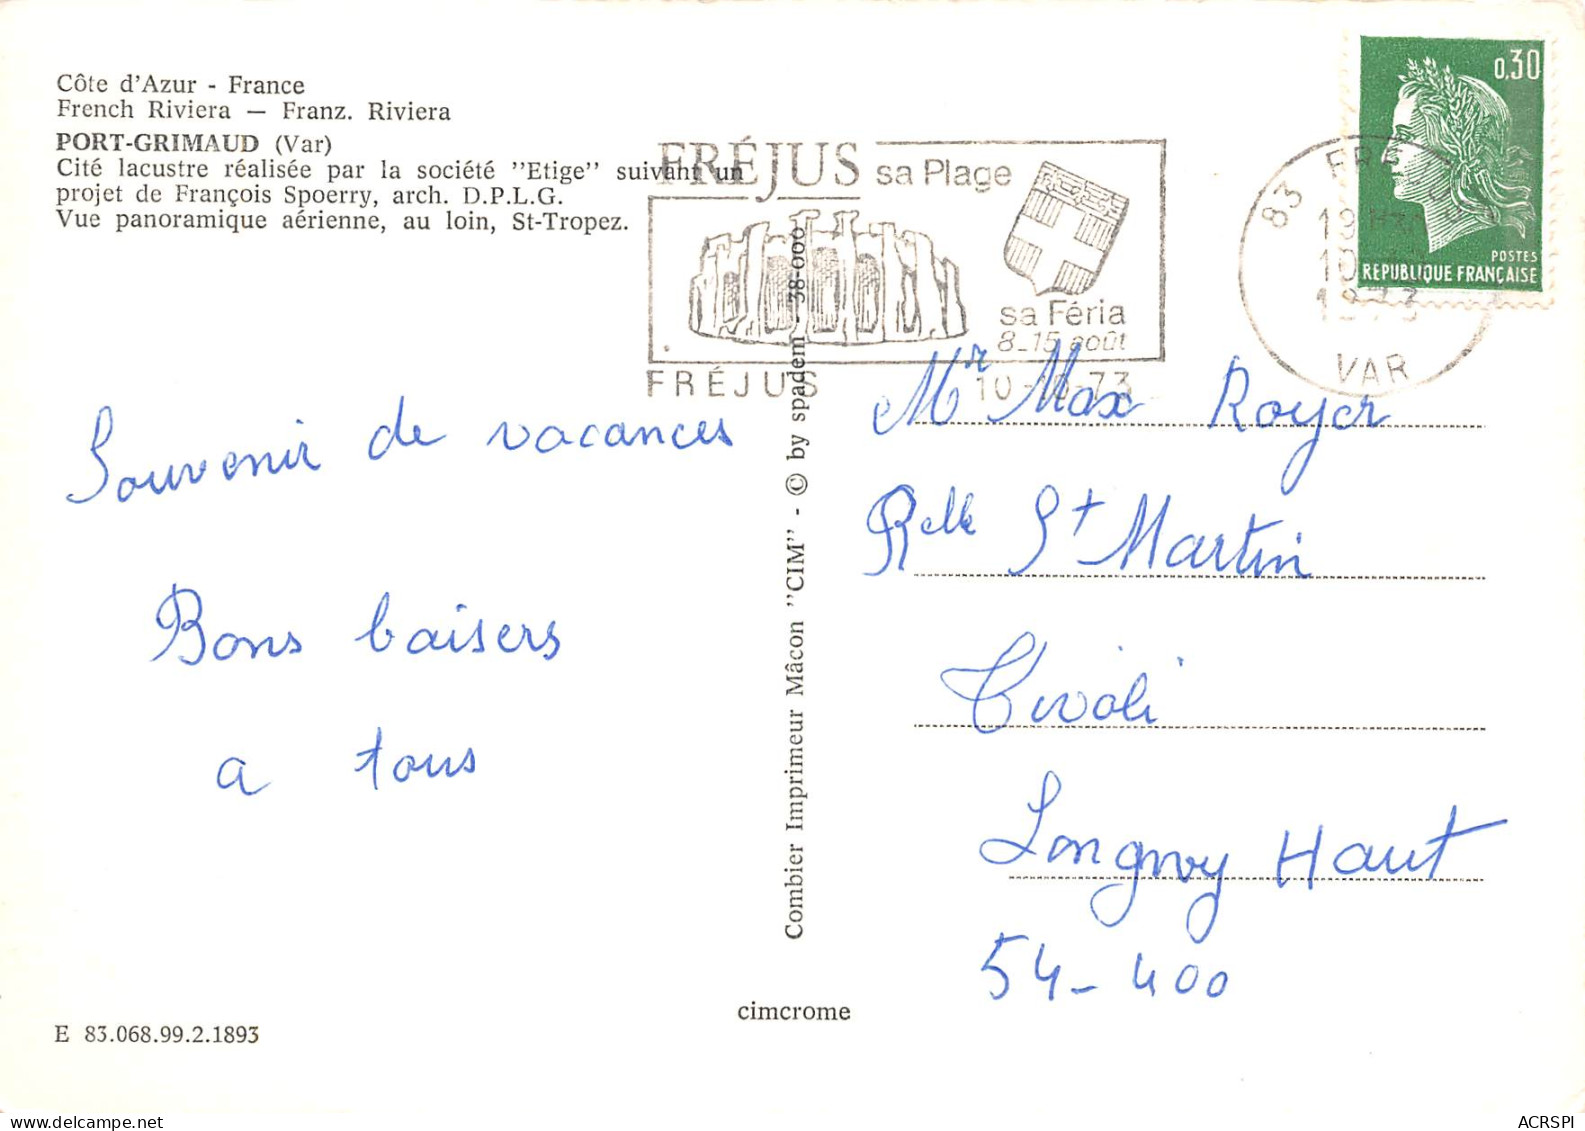 Côte d'Azur - France
French Riviera — Franz. Riviera
PORT-GRIMAUD (Var)
Cité lacustre réalisée par la société "Etige" suivant un
projet de François Spoerry, arch. D.P.L.G.
Vue panoramique aérienne, au loin, St-Tropez.
FRÉJUS sa Plage
sa Féria
8-15 août
FRÉJUS 10-10-73
83 FRÉJUS
VAR
0,30
POSTES
REPUBLIQUE FRANÇAISE
Souvenir de vacances
Bons baisers
a tous
Combier Imprimeur Mâcon "CIM" - © by spadem - 38-000
Mr Max Royer
Relle St Martin
Tivoli
Longwy Haut
54-400
cimcrome
E 83.068.99.2.1893
ACRSPI